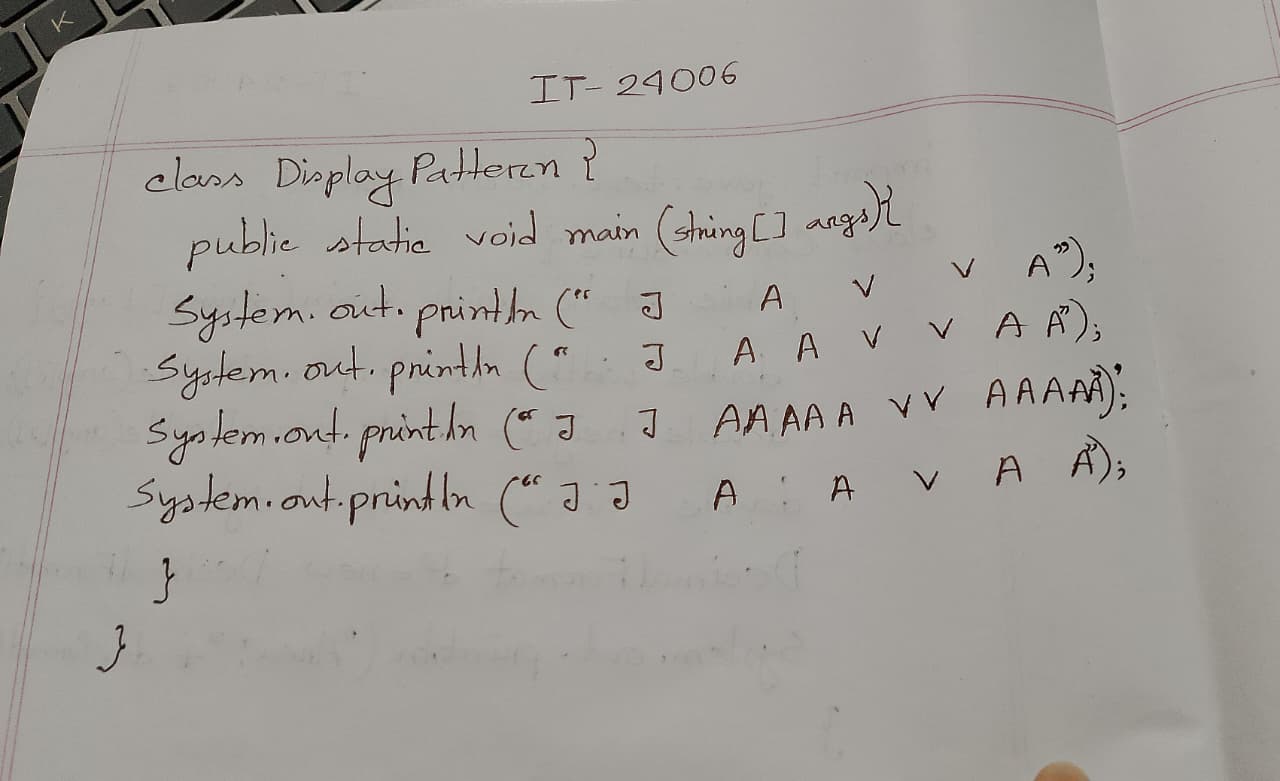 IT-24006
class Display Pattern {
public static void main (string[] args){
System.out.println (" J A V V A");
System.out.println (" J A A V V A A");
System.out.println (" J J AAAAA VV AAAAA");
System.out.println (" J J A A V A A");
}
}